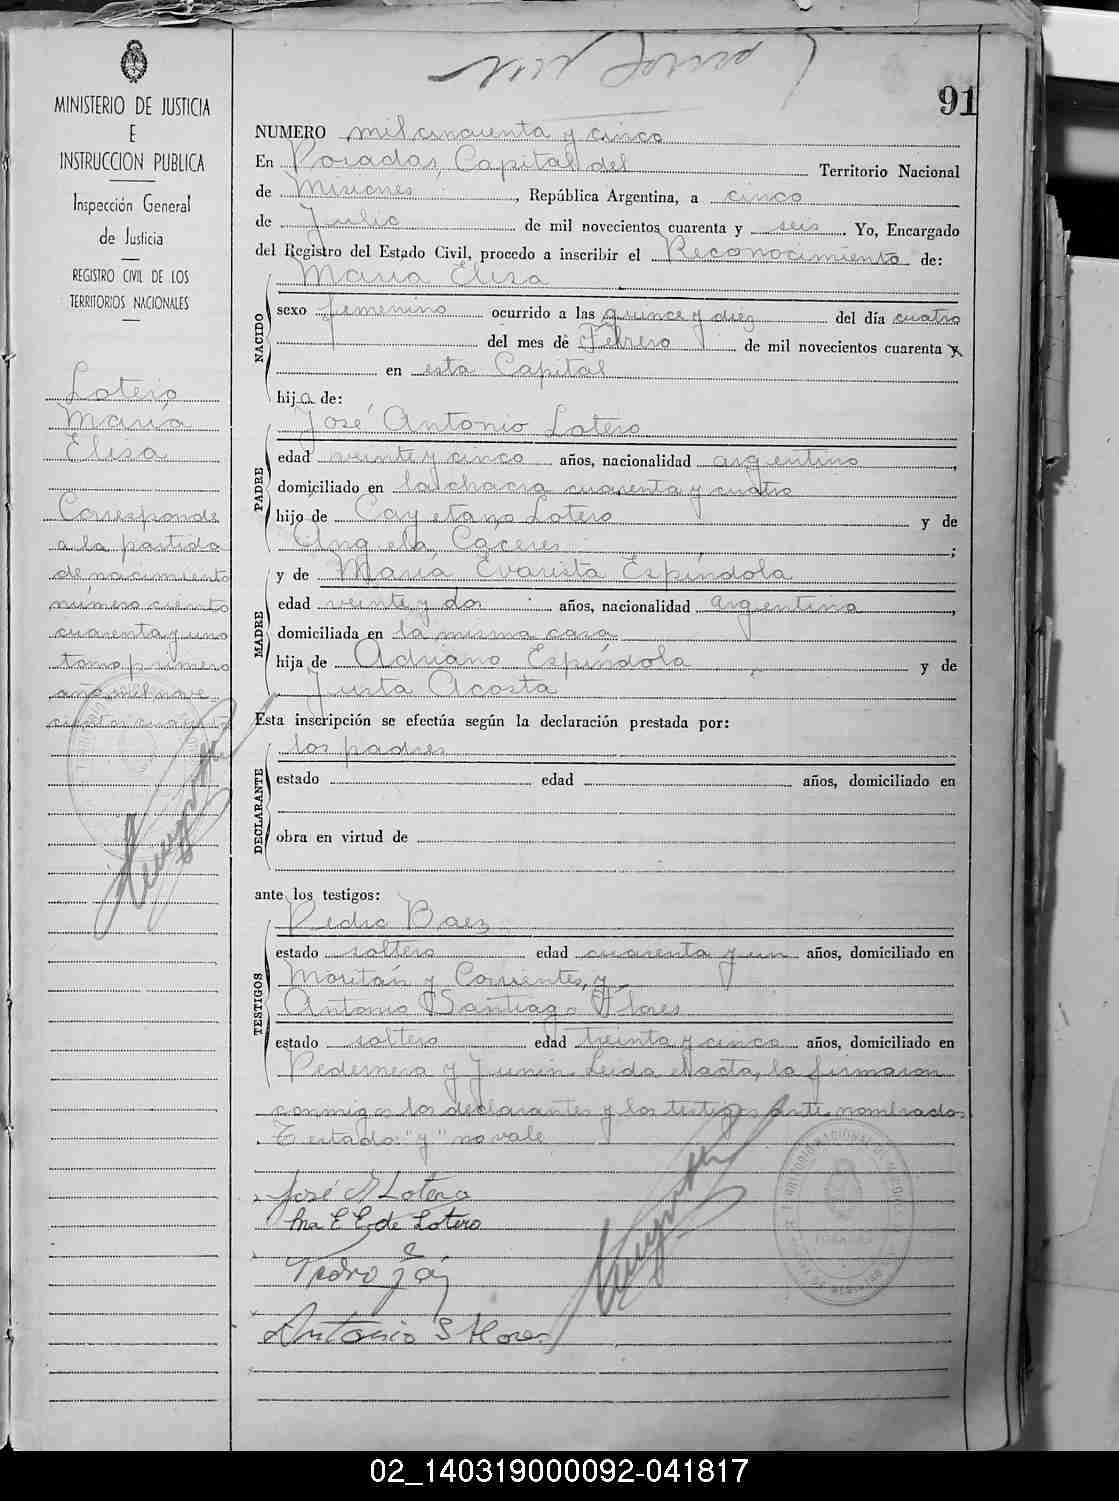 91
MINISTERIO DE JUSTICIA
E
INSTRUCCION PUBLICA
Inspección General
de Justicia
REGISTRO CIVIL DE LOS
TERRITORIOS NACIONALES
Lotero
María
Elisa
Corresponde
a la partida
de nacimiento
número ciento
cuarenta y uno
tomo primero
año mil nove
cientos cuarenta
NUMERO mil cincuenta y cinco
En Posadas, Capital del Territorio Nacional
de Misiones, República Argentina, a cinco
de Julio de mil novecientos cuarenta y seis. Yo, Encargado
del Registro del Estado Civil, procedo a inscribir el Reconocimiento de:
María Elisa
NACIDO
sexo femenino ocurrido a las quince y diez del día cuatro
del mes de Febrero de mil novecientos cuarenta y
en esta Capital
hija de:
José Antonio Lotero
PADRE
edad veinte y cinco años, nacionalidad argentino,
domiciliado en la chacra cuarenta y cuatro
hijo de Cayetano Lotero y de
Angela Caceres;
y de María Evarista Espíndola
MADRE
edad veinte y dos años, nacionalidad argentina,
domiciliada en la misma casa
hija de Adriano Espíndola y de
Justa Acosta
Esta inscripción se efectúa según la declaración prestada por:
los padres
DECLARANTE
estado edad años, domiciliado en
obra en virtud de
ante los testigos:
Pedro Baez
TESTIGOS
estado soltero edad cuarenta y un años, domiciliado en
Moritán y Corrientes, y
Antonio Santiago Flores
estado soltero edad treinta y cinco años, domiciliado en
Pedernera y Junin. Leida el acta, la firmaron
conmigo los declarantes y los testigos ante nombrados.
Testado: "y" no vale
José A Lotero
Ma E E de Lotero
Pedro
Antonio S Flores
02_140319000092-041817